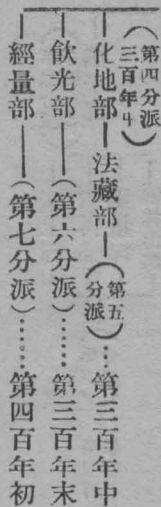 (第四分派
三百年中)
化地部—法藏部—(第五分派)…第三百年中
飲光部——(第六分派)……第三百年末
經量部——(第七分派)……第四百年初